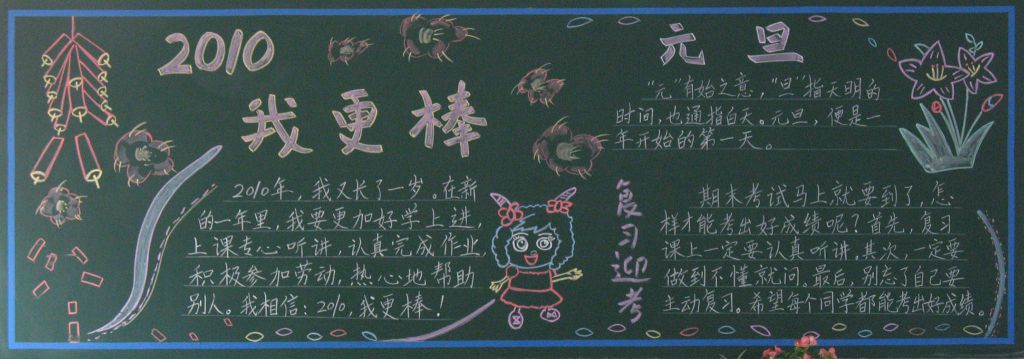 2010
我更棒
2010年，我又长了一岁。在新
的一年里，我要更加好学上进，
上课专心听讲，认真完成作业，
积极参加劳动，热心地帮助
别人。我相信：2010，我更棒！
元旦
“元”有始之意，“旦”指天明的
时间，也通指白天。元旦，便是一
年开始的第一天。
复习迎考
期末考试马上就要到了，怎
样才能考出好成绩呢？首先，复习
课上一定要认真听讲，其次，一定要
做到不懂就问。最后，别忘了自己要
主动复习。希望每个同学都能考出好成绩。